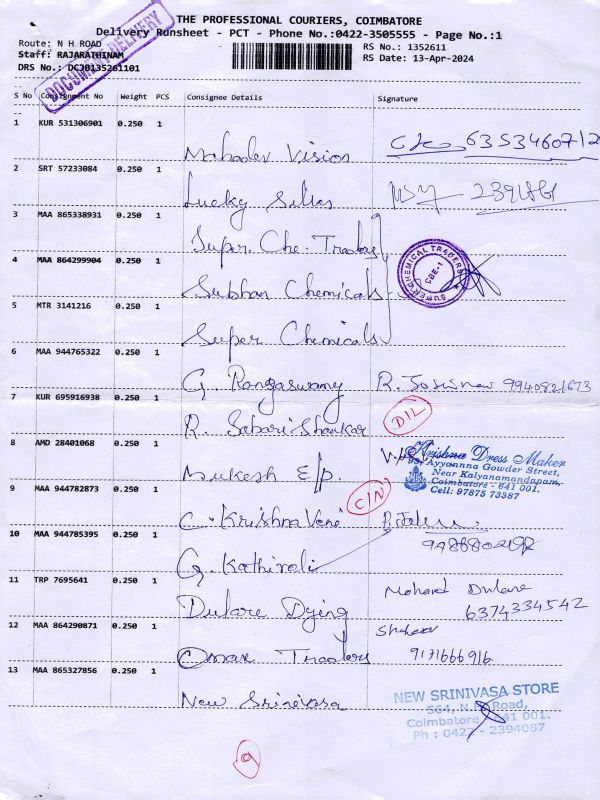 THE PROFESSIONAL COURIERS, COIMBATORE
Delivery Runsheet - PCT - Phone No.:0422-3505555 - Page No.:1
Route: N H ROAD
RS No.: 1352611
Staff: RAJARATHINAM
RS Date: 13-Apr-2024
DRS No.: DCJB135261101
DOCUMENT DELIVERY
S No Consignment No Weight PCS Consignee Details Signature
1 KUR 531306901 0.250 1 Mahadev Vision 6353460712
2 SRT 57233084 0.250 1 Lucky Silks
3 MAA 865338931 0.250 1 Super Che. Trading
4 MAA 864299904 0.250 1 Subhan Chemicals
SUPER CHEMICAL TRADERS
CBE-1
5 MTR 3141216 0.250 1 Super Chemicals
6 MAA 944765322 0.250 1 G. Rangaswamy 9940821673
7 KUR 695916938 0.250 1 R. Sabari Shankar D/L
8 AMD 28401068 0.250 1 Mukesh E/p.
Krishna Dress Maker
Ayyannna Gowder Street,
Near Kalyanamandapam,
Coimbatore - 641 001.
Cell: 97875 73387
9 MAA 944782873 0.250 1 C. Krishna Veni C/N
10 MAA 944785395 0.250 1 G. Kathiroli
11 TRP 7695641 0.250 1 Dulare Dying Mohard Dulare
6374334542
12 MAA 864290871 0.250 1 Omar Traders
9171666916
13 MAA 865327856 0.250 1 New Srinivasa
NEW SRINIVASA STORE
564, N.H. Road,
Coimbatore - 641 001.
Ph : 0422 - 2394087
9